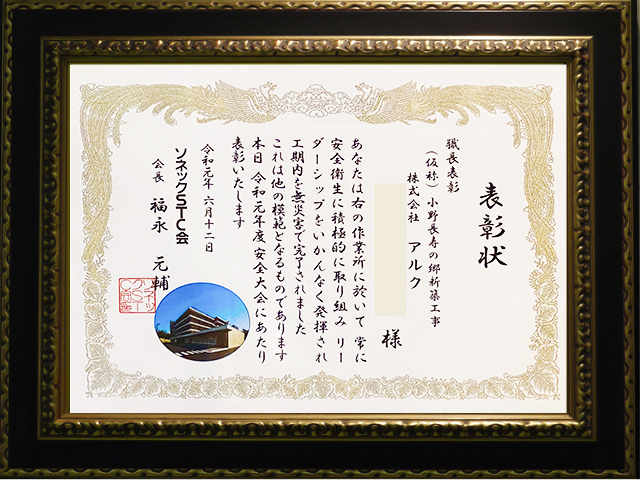 表彰状
職長表彰
(仮称) 小野長寿の郷新築工事
株式会社 アルク
様
あなたは右の作業所に於いて 常に
安全衛生に積極的に取り組み リー
ダーシップをいかんなく発揮され
工期内を無災害で完了されました
これは他の模範となるものであります
本日 令和元年度 安全大会にあたり
表彰いたします
令和元年 六月十二日
ソネックSTC会
会長 福永 元輔